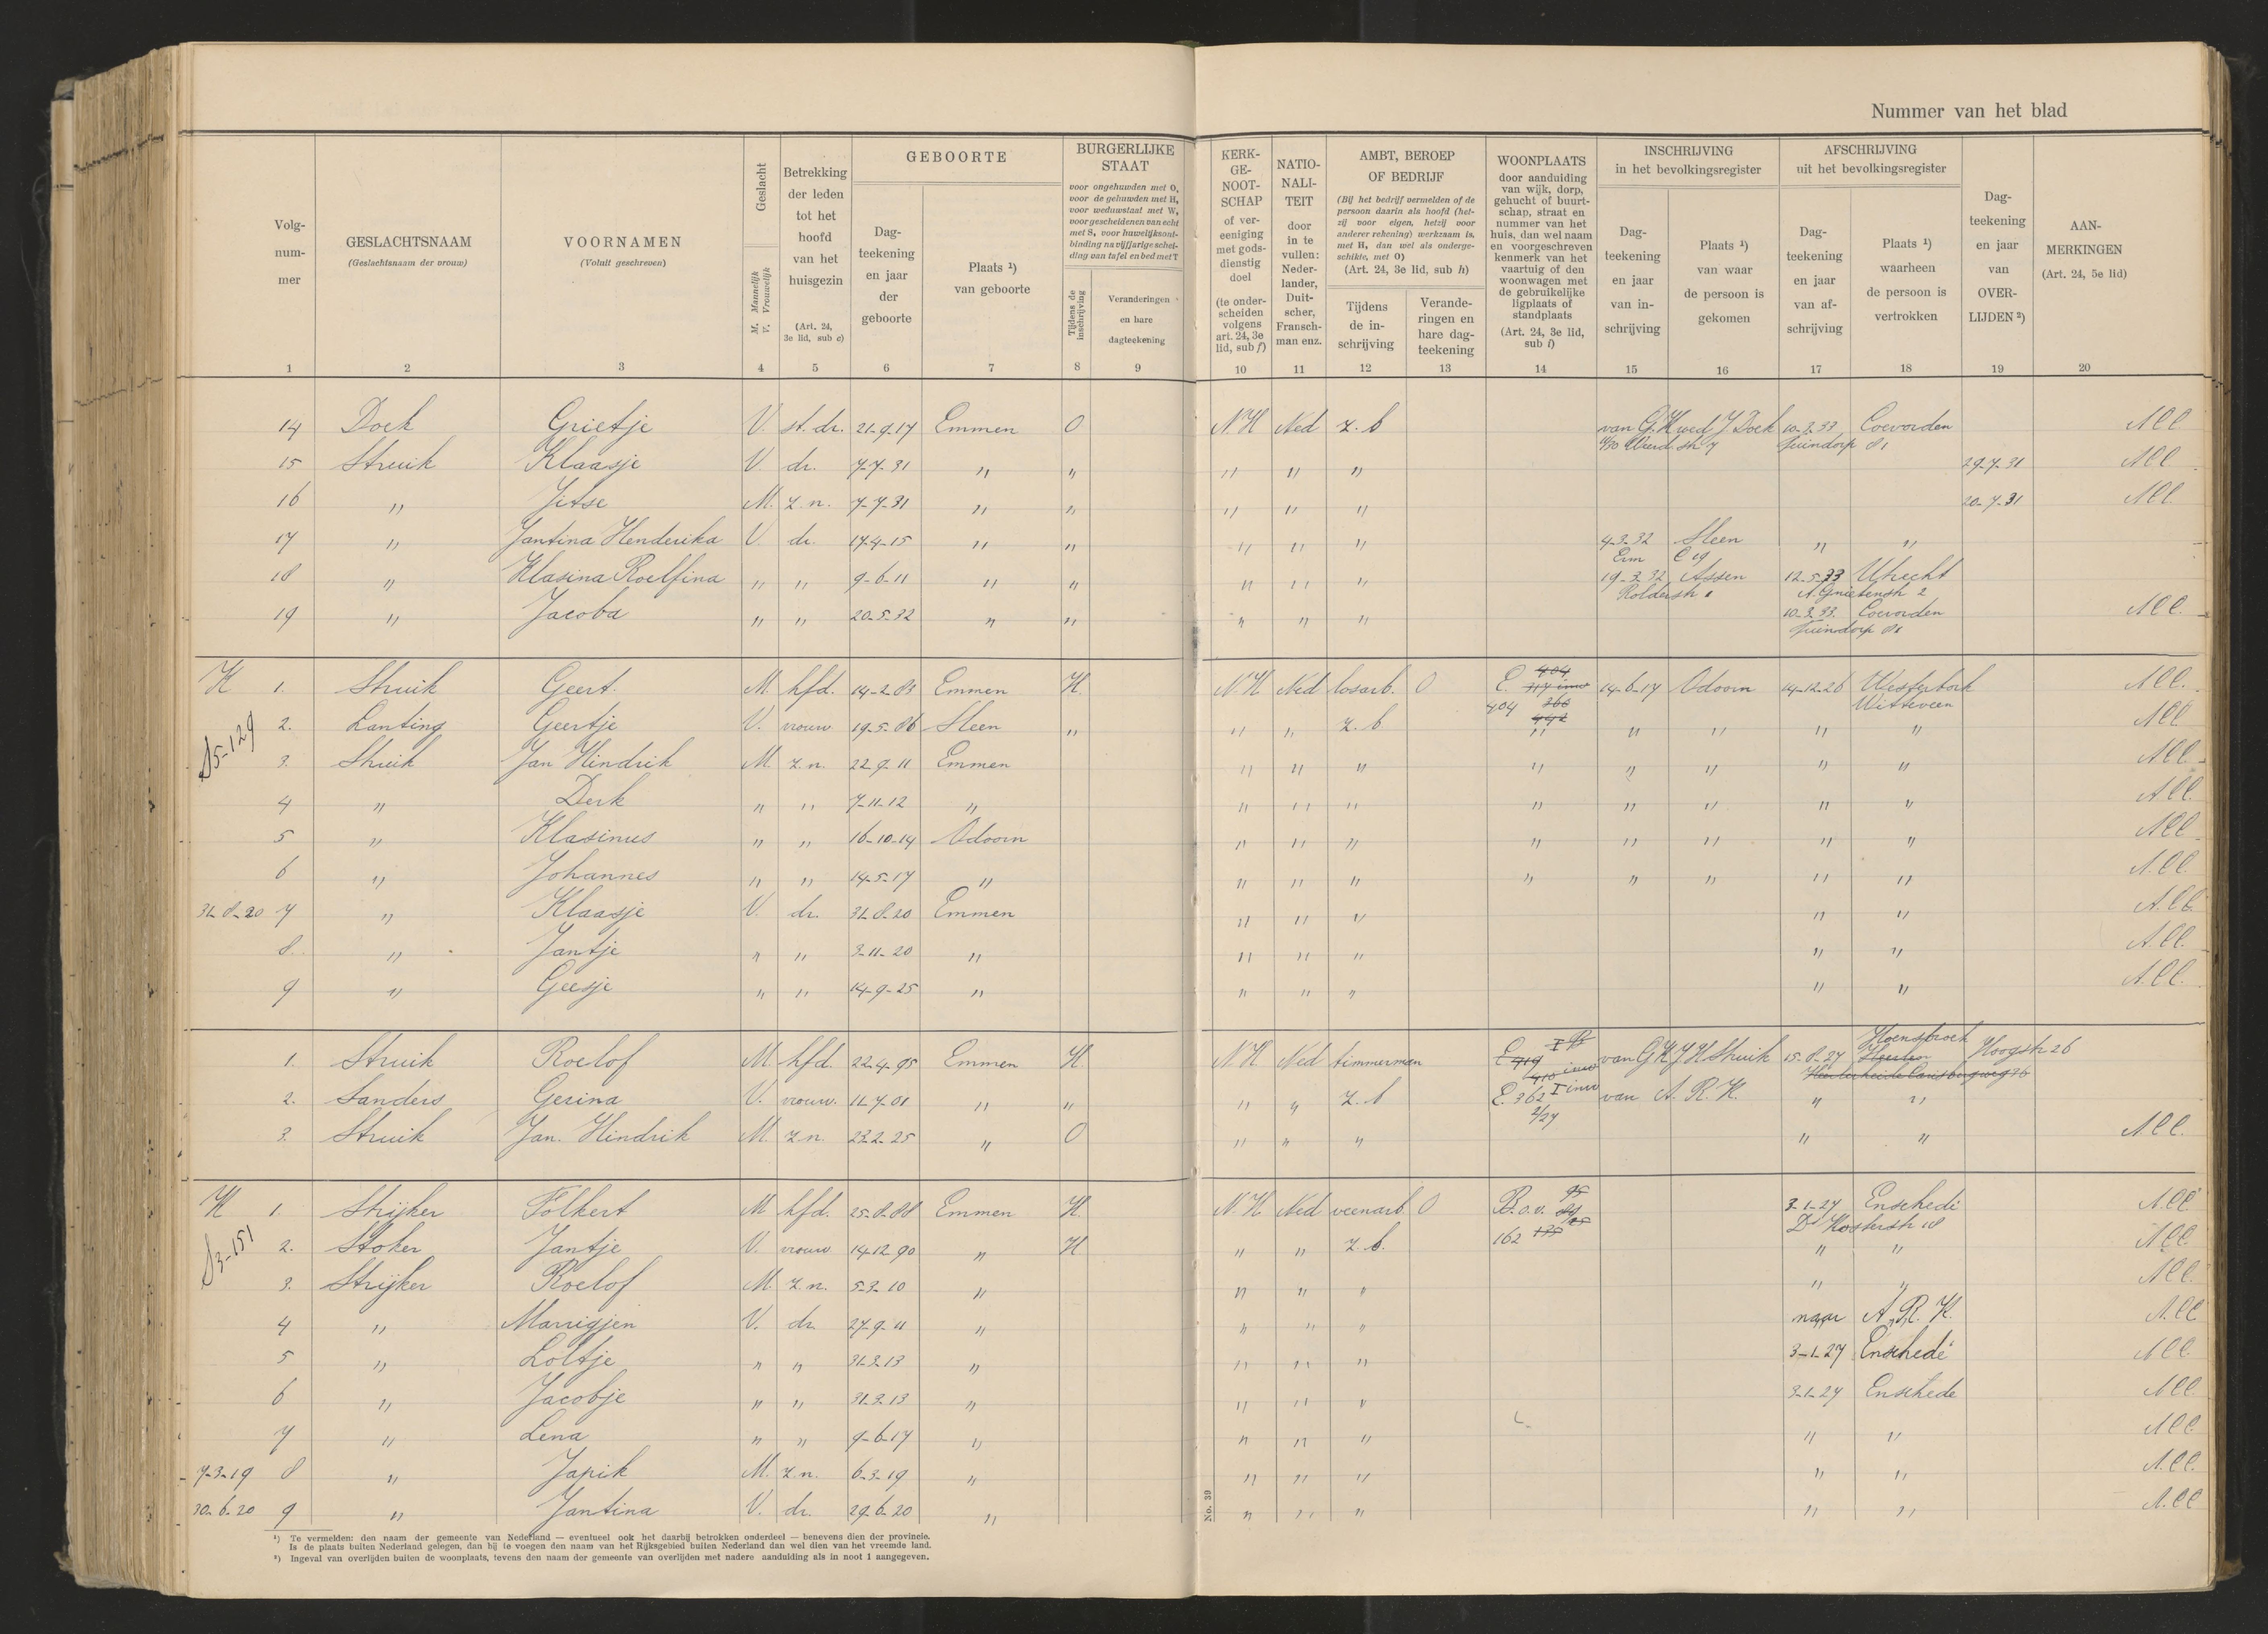 Nummer van het blad
Volg-
num-
mer
GESLACHTSNAAM
(Geslachtsnaam der vrouw)
VOORNAMEN
(Voluit geschreven)
Geslacht
M. Mannelijk
V. Vrouwelijk
Betrekking
der leden
tot het
hoofd
van het
huisgezin
(Art. 24,
3e lid, sub e)
GEBOORTE
Dag-
teekening
en jaar
der
geboorte
Plaats ¹)
van geboorte
BURGERLIJKE
STAAT
voor ongehuwden met O,
voor de gehuwden met H,
voor weduwstaat met W,
voor gescheidenen van echt
met S, voor huwelijksont-
binding na vijfjarige schei-
ding van tafel en bed met T
Tijdens de
inschrijving
Veranderingen
en hare
dagteekening
KERK-
GE-
NOOT-
SCHAP
of ver-
eeniging
met gods-
dienstig
doel
(te onder-
scheiden
volgens
art. 24, 3e
lid, sub f)
NATIO-
NALI-
TEIT
door
in te
vullen:
Neder-
lander,
Duit-
scher,
Fransch-
man enz.
AMBT, BEROEP
OF BEDRIJF
(Bij het bedrijf vermelden of de
persoon daarin als hoofd (het-
zij voor eigen, hetzij voor
anderer rekening) werkzaam is,
met H, dan wel als onderge-
schikte, met O)
(Art. 24, 3e lid, sub h)
Tijdens
de in-
schrijving
Verande-
ringen en
hare dag-
teekening
WOONPLAATS
door aanduiding
van wijk, dorp,
gehucht of buurt-
schap, straat en
nummer van het
huis, dan wel naam
en voorgeschreven
kenmerk van het
vaartuig of den
woonwagen met
de gebruikelijke
ligplaats of
standplaats
(Art. 24, 3e lid,
sub i)
INSCHRIJVING
in het bevolkingsregister
Dag-
teekening
en jaar
van in-
schrijving
Plaats ¹)
van waar
de persoon is
gekomen
AFSCHRIJVING
uit het bevolkingsregister
Dag-
teekening
en jaar
van af-
schrijving
Plaats ¹)
waarheen
de persoon is
vertrokken
Dag-
teekening
en jaar
van
OVER-
LIJDEN ²)
AAN-
MERKINGEN
(Art. 24, 5e lid)
1 2 3 4 5 6 7 8 9 10 11 12 13 14 15 16 17 18 19 20
14 Doek Grietje V. st. dr. 21-9-17 Emmen O N.H Ned z.b van G.K wed J Doek 10-3-33 Coevorden
Tuindorp 81
15 Struik Klaasje V. dr. 7-7-31 " " " " " 29-7-31
16 " Jitse M. z.n. 7-7-31 " " " " " 20-7-31
17 " Jantina Henderika V. dr. 17-4-15 " " " " " 4-3-32 Sleen " "
Erm C 19
18 " Klasina Roelfina " " 9-6-11 " " " " " 19-3-32 Assen 12-5-33 Utrecht
Rolderstr
19 " Jacoba " " 20-5-32 " " " " " 10-3-33 Coevorden
Tuindorp 81
K 1. Struik Geert. M. hfd. 14-2-83 Emmen H. N.H Ned losarb. O E. 404 14-6-17 Odoorn 14-12-26 Westerbork
Witteveen
S5-129
2. Lanting Geertje V. vrouw 19-5-86 Sleen " " " z.b 404 " " " " "
3. Struik Jan Hindrik M. z.n. 22-9-11 Emmen " " " " " " " "
4 " Derk " " 7-11-12 " " " " " " " " "
5 " Klasinus " " 16-10-14 Odoorn " " " " " " " "
6 " Johannes " " 14-5-17 " " " " " " " " "
31-8-20 7 " Klaasje V. dr. 31-8-20 Emmen " " " " "
8. " Jantje " " 3-11-20 " " " " " "
9 " Geesje " " 14-9-25 " " " " " "
1. Struik Roelof M. hfd. 22-4-95 Emmen H. N.H. Ned timmerman van G.K J.H Struik 15-8-27 Hoensbroek Hoogstr 26
2. Sanders Gesina V. vrouw. 11-7-01 " " " " z.b E. 362 I inw van A.R.K. " "
2/27
3. Struik Jan. Hindrik M. z.n. 23-2-25 " O " " " " "
K 1. Strijker Folkert M hfd. 25-8-88 Emmen H. N.H Ned veenarb. O B.o.v. 3-1-27 Enschedé
S3-151
2. Stoker Jantje V. vrouw 14-12-90 " H " " z.b. 162 " "
3. Strijker Roelof M. z.n. 5-3-10 " " " " " "
4 " Marrigjen V. dr. 27-9-11 " " " " naar A.R.K.
5 " Loltje " " 31-3-13 " " " " 3-1-27 Enschedé
6 " Jacobje " " 31-3-13 " " " " 3-1-27 Enschede
7 " Lena " " 9-6-17 " " " " " "
7-3-19 8 " Japik M. z.n. 6-3-19 " " " " " "
30-6-20 9 " Jantina V. dr. 29-6-20 " " " " " "
No. 39
¹) Te vermelden: den naam der gemeente van Nederland — eventueel ook het daarbij betrokken onderdeel — benevens dien der provincie.
Is de plaats buiten Nederland gelegen, dan bij te voegen den naam van het Rijksgebied buiten Nederland dan wel dien van het vreemde land.
²) Ingeval van overlijden buiten de woonplaats, tevens den naam der gemeente van overlijden met nadere aanduiding als in noot 1 aangegeven.